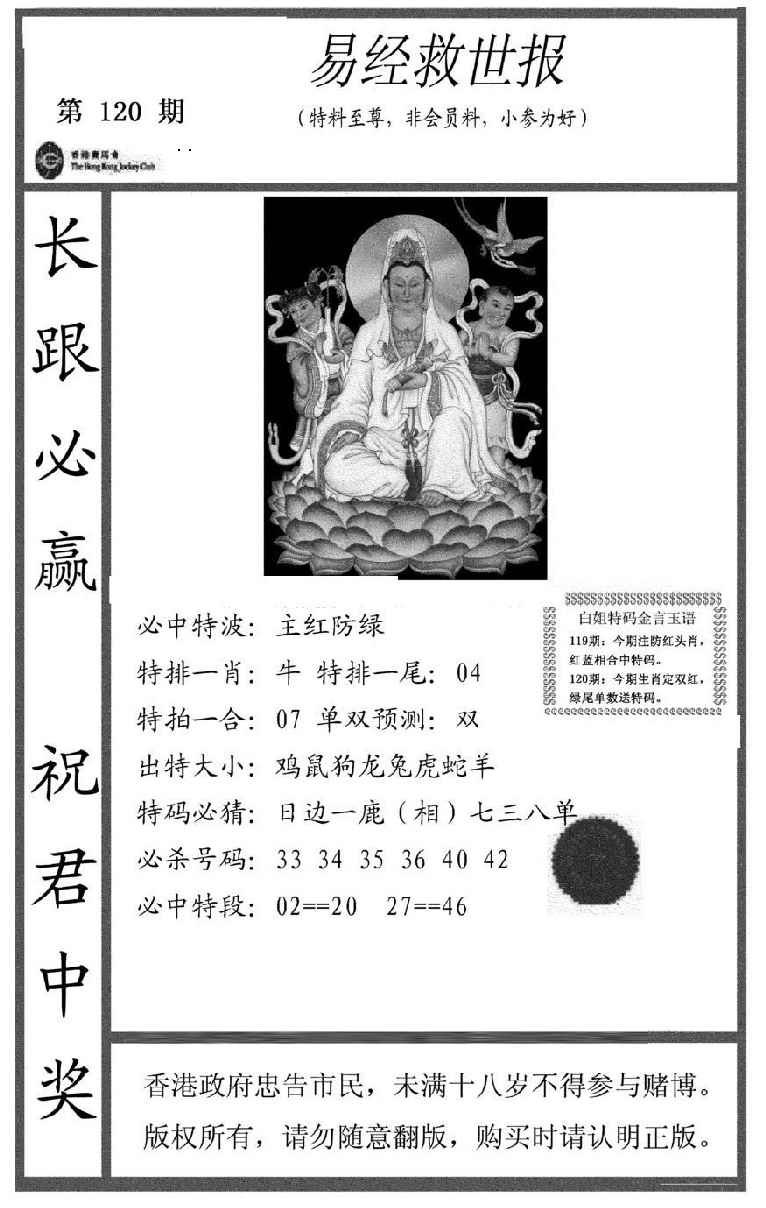 易经救世报
第 120 期
（特料至尊，非会员料，小参为好）
香港賽馬會
The Hong Kong Jockey Club
长跟必赢 祝君中奖
必中特波：主红防绿
特排一肖：牛 特排一尾：04
特拍一合：07 单双预测：双
出特大小：鸡鼠狗龙兔虎蛇羊
特码必猜：日边一鹿（相）七三八单
必杀号码：33 34 35 36 40 42
必中特段：02==20 27==46
白姐特码金言玉语
119期：今期注防红头肖，
红蓝相合中特码。
120期：今期生肖定双红，
绿尾单数送特码。
香港政府忠告市民，未满十八岁不得参与赌博。
版权所有，请勿随意翻版，购买时请认明正版。